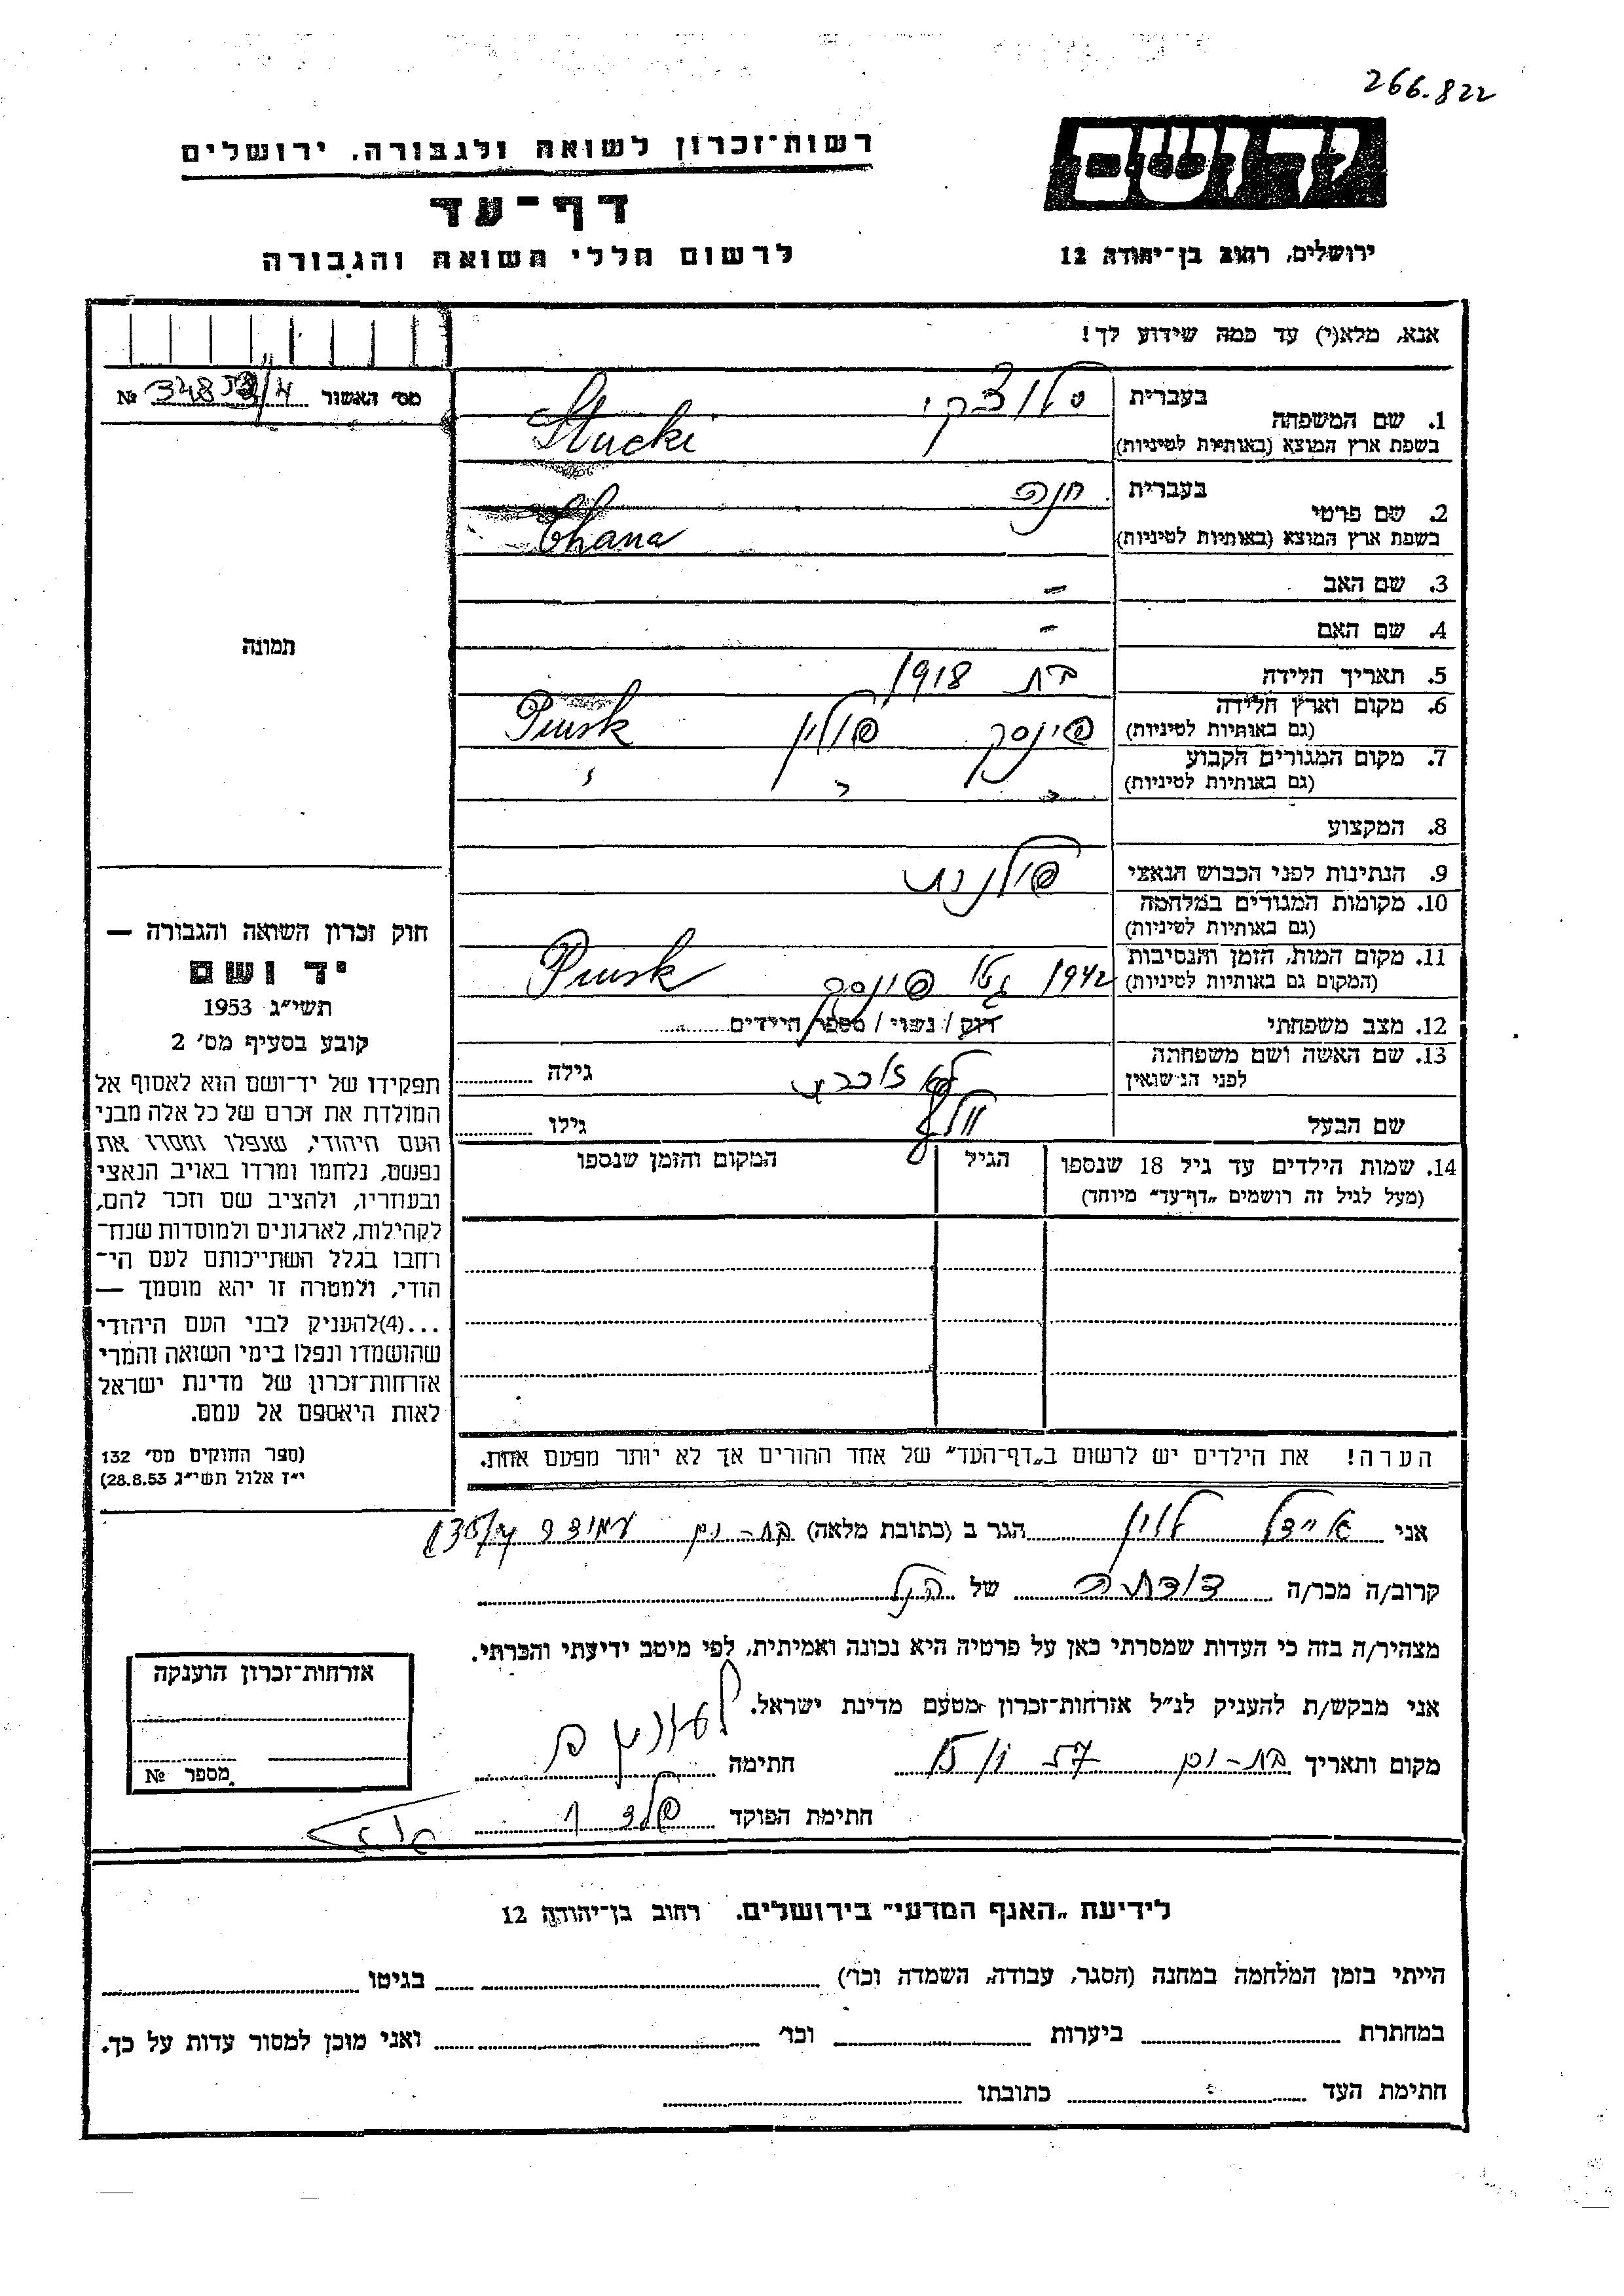 266.822
יד ושם
רשות־זכרון לשואה ולגבורה. ירושלים
דף־עד
לרשום חללי השואה והגבורה
ירושלים, רחוב בן־יהודה 12
אנא, מלא(י) עד כמה שידוע לך!
מס׳ האשור № 348
1. שם המשפחה בעברית סלוצקי
בשפת ארץ המוצא (באותיות לטיניות) Slucki
2. שם פרטי בעברית חנה
בשפת ארץ המוצא (באותיות לטיניות) Chana
3. שם האב -
4. שם האם -
5. תאריך הלידה בת 1918
6. מקום וארץ הלידה (גם באותיות לטיניות) פינסק פולין Pinsk
7. מקום המגורים הקבוע (גם באותיות לטיניות) " " "
8. המקצוע
9. הנתינות לפני הכבוש הנאצי פולנית
10. מקומות המגורים במלחמה (גם באותיות לטיניות)
11. מקום המות, הזמן והנסיבות (המקום גם באותיות לטיניות) 1942 גטו פינסק Pinsk
12. מצב משפחתי רוק / נשוי / מספר הילדים
13. שם האשה ושם משפחתה לפני הנישואין גילה
שם הבעל גילו
14. שמות הילדים עד גיל 18 שנספו הגיל המקום והזמן שנספו
(מעל לגיל זה רושמים „דף־עד״ מיוחד)
הערה! את הילדים יש לרשום ב„דף־העד״ של אחד ההורים אך לא יותר מפעם אחת.
תמונה
חוק זכרון השואה והגבורה —
יד ושם
תשי״ג 1953
קובע בסעיף מס׳ 2
תפקידו של יד־ושם הוא לאסוף אל
המולדת את זכרם של כל אלה מבני
העם היהודי, שנפלו ומסרו את
נפשם, נלחמו ומרדו באויב הנאצי
ובעוזריו, ולהציב שם וזכר להם,
לקהילות, לארגונים ולמוסדות שנח־
רחבו בגלל השתייכותם לעם הי־
הודי, ולמטרה זו יהא מוסמך —
...(4)להעניק לבני העם היהודי
שהושמדו ונפלו בימי השואה והמרי
אזרחות־זכרון של מדינת ישראל
לאות היאספם אל עמם.
(ספר החוקים מס׳ 132
י״ז אלול תשי״ג 28.8.53)
אני אידל לוין הגר ב (כתובת מלאה) בת-ים
קרוב/ה מכר/ה דודתה של הנ״ל
מצהיר/ה בזה כי העדות שמסרתי כאן על פרטיה היא נכונה ואמיתית, לפי מיטב ידיעתי והכרתי.
אני מבקש/ת להעניק לנ״ל אזרחות־זכרון מטעם מדינת ישראל.
מקום ותאריך בת-ים חתימה
חתימת הפוקד
אזרחות־זכרון הוענקה
מספר №
לידיעת „האגף המדעי״ בירושלים. רחוב בן־יהודה 12
הייתי בזמן המלחמה במחנה (הסגר, עבודה, השמדה וכו׳) בגיטו
במחתרת ביערות וכו׳ ואני מוכן למסור עדות על כך.
חתימת העד כתובתו